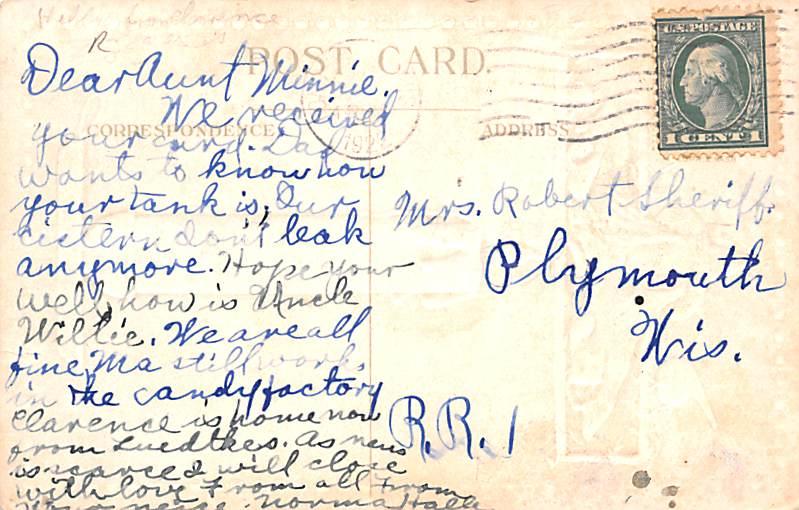 Hello from Clarence
POST CARD.
CORRESPONDENCE
ADDRESS
U.S. POSTAGE
1 CENT 1
Dear Aunt Minnie.
We received
your card. Dad
wants to know how
your tank is, Our
cistern don't leak
anymore. Hope your
well, how is Uncle
Willie. We are all
fine, Ma still works
in the candy factory
Clarence is home now
from Luedtkes. As news
is scarce I will close
with love From all From
Your niece. Norma
Mrs. Robert Sheriff.
Plymouth
Wis.
R.R. 1